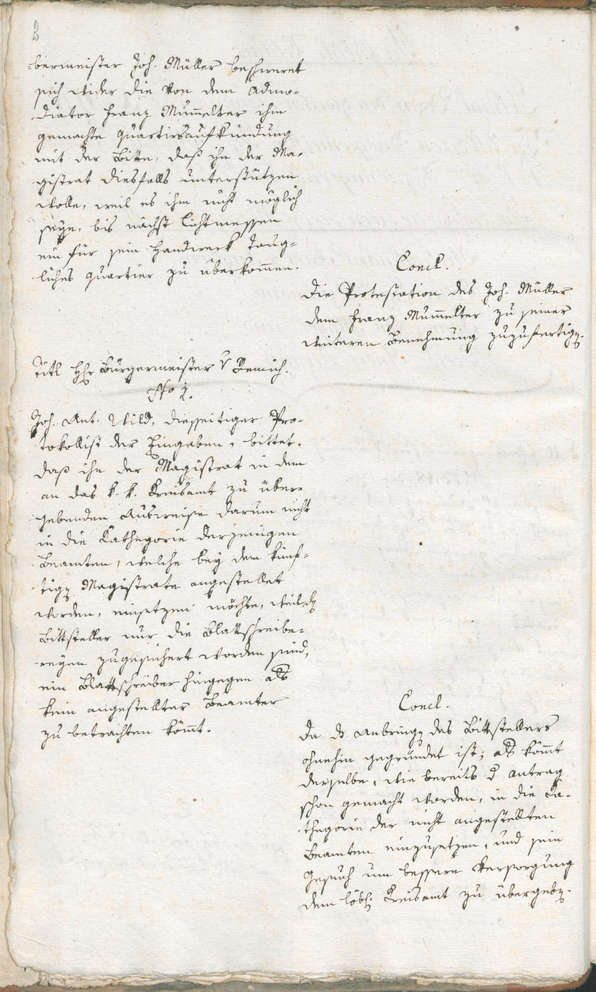 2
bermeister Joh. Müller beschweret
sich wider die von dem Admo-
diator Franz Mum̄elter ihm
gemachte Quartiersaufkündung
mit der Bitte, daß ihn der Ma-
gistrat diesfalls unterstützen
wolle, weil es ihm nicht möglich
seÿe, bis nächst Lichtmessen
ein für sein Handwerk taug-
liches Quartier zu überkom̄en.
Concl.
Die Protestation des Joh. Müller
dem Franz Mum̄elter zu seiner
weiteren Benehmung zuzufertigen.
Titl Hr Bürgermeister v
No 2.
Joh. Ant. Wild, diesseitiger Pro-
tokollist der Eingaben, bittet,
daß ihn der Magistrat in dem
an das k. k. Kreisamt zu über-
gebenden Ausweise darum nicht
in die Kathegorie derjenigen
Beamten, welche beÿ dem künf-
tigen Magistrate angestellet
werden, einsetzen möchte, weil
Bittsteller nur die Blattschreibe-
reÿen zugesichert worden sind,
ein Blattschreiber hingegen als
kein angestellter Beamter
zu betrachten köm̄t.
Concl.
Da das Anbringen des Bittstellers
ohnehin gegründet ist; als köm̄t
derselbe, wie bereits der Antrag
schon gemacht worden, in die Ka-
thegorie der nicht angestellten
Beamten einzusetzen, und sein
Gesuch um bessere Versorgung
dem löbl. Kreisamt zu übergeben.